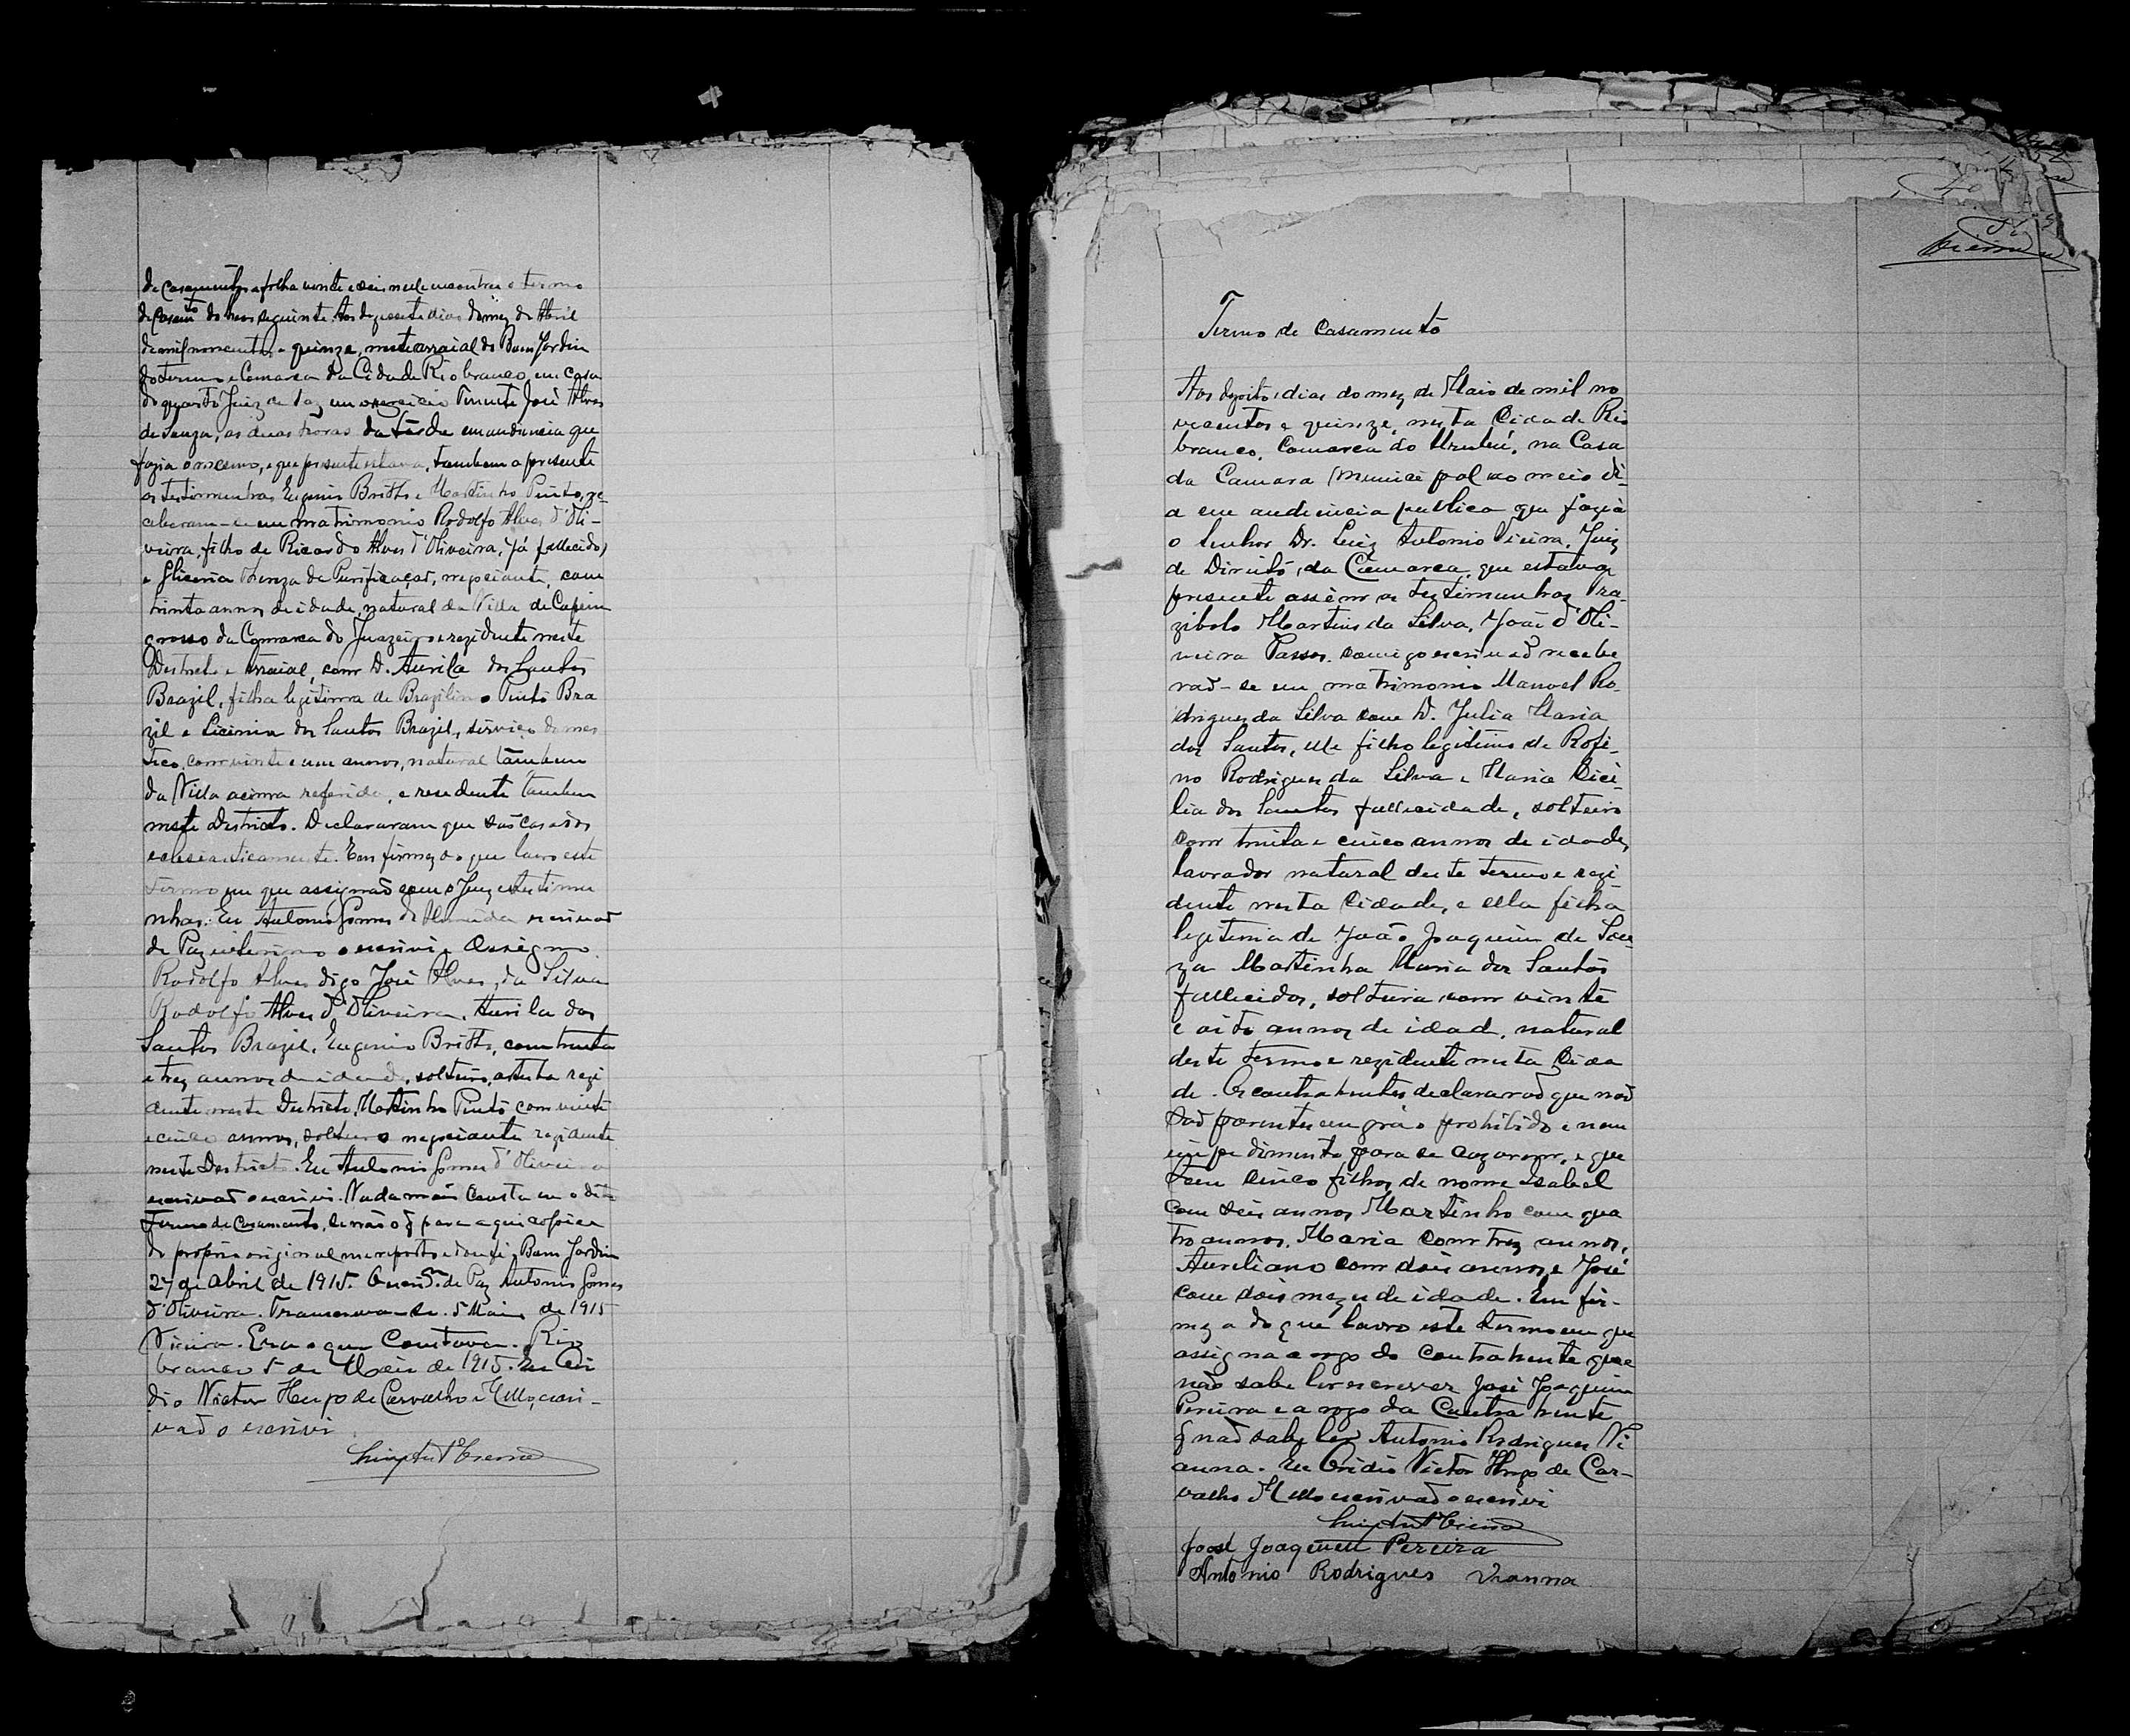 de casamentos a folha vinte e seis nelle encontrei o termo
de casamto do theor seguinte. Aos dezesete dias do mez de Abril
de mil novecentos e quinze, neste arraial do Bom Jardim
do termo e Comarca da Cidade Rio branco, em casa
do quarto Juiz de Paz em exercicio Tenente José Alves
de Souza, as duas horas da tarde em audiencia que
fazia o mesmo, e que presente estava, tambem a presente
as testimunhas Eugenio Britto e Martinho Pinto, re-
ceberam-se em matrimonio Rodolfo Alves d'Oli-
veira, filho de Ricardo Alves d'Oliveira, já fallecido,
e Gliceria Souza da Purificaçaõ, negociante, com
trinta annos de idade, natural da Villa de Capim
grosso da Comarca do Juazeiro e rezidente neste
Destricto e arraial, com D. Aurila dos Santos
Brazil, filha legitima de Brazilino Pinto Bra
zil e Licinia dos Santos Brazil, serviço domes
tico, com vinte e um annos, natural tambem
da Villa acima referida, e residente tambem
neste Districto. Declararam que saõ casados
eclesiasticamente. Em firmeza do que lavro este
termo em que assignaõ com o Juiz e testimu
nhas. Eu Antonio Gomes de escrivaõ
de Paz interino o escrivi e assigno.
Rodolfo Alves digo José Alves da Silva
Rodolfo Alves d'Oliveira, Aurila dos
Santos Brazil, Eugenio Britto, com trinta
e trez annos de idade, solteiro, artista rezi
dente neste Destricto, Martinho Pinto com vinte
e cinco annos, solteiro negociante rezidente
neste Destricto. Eu Antonio Gomes d'Oliveira
escrivaõ o escrivi. Nada mais consta em o dito
termo de Casamento, para aqui copiei
do proprio original me reporto e dou fé. Bom Jardim
27 de Abril de 1915. O escrm de Paz Antonio Gomes
d'Oliveira. Transcreva-se. 5 Maio de 1915
Vieira. Era o que Constava. Rio
branco 5 de Maio de 1915. Eu Ovi
dio Victor Hugo de Carvalho e Mello, escri-
vaõ o escrivi
Luiz Antº Vieira
Vieira
Termo de Casamento
Aos dezoito dias do mez de Maio de mil no
vecentos e quinze, nesta Cidade Rio
branco, Comarca do Urubú, na Casa
da Camara Municipal ao meio di-
a em audiencia publica que fazia
o Senhor Dr. Luiz Antonio Vieira, Juiz
de Direito da Comarca, que estava
presente assim as testimunhas Tra-
zibolo Martins da Silva, João d'Oli-
veira Passos, comigo escrivaõ recebe
raõ-se em matrimonio Manoel Ro-
drigues da Silva com D. Julia Maria
dos Santos, elle filho legitimo de Rofi-
no Rodrigues da Silva e Maria Cici-
lia dos Santos fallecida de, solteiro
com trinta e cinco annos de idade,
lavrador natural deste termo e rezi-
dente nesta Cidade, e ella filha
legitima de João Joaquim de Sou-
za Martinha Maria dos Santos
fallecidos, solteira com vinte
e oito annos de idad, natural
deste termo e rezidente nesta Cida
de. Os contrahentes declararaõ que naõ
saõ parentes em gráo prohibido e nem
impedimento para se cazarem, e que
tem cinco filhos de nome Isabel
com seis annos Martinho com qua
tro annos. Maria com trez annos,
Aureliano com dois annos e José
com dois mezes de idade. Em fir-
meza do que lavro este termo em que
assigna a rogo do Contrahente que
não sabe ler escrever José Joaquim
Pereira e a rogo da Contrahente
q naõ sabe ler Antonio Rodrigues Vi
anna. Eu Ovidio Victor Hugo de Car-
valho Mello escrivaõ o escrivi
Luiz Antº Vieira
José Joaquim Pereira
Antonio Rodrigues Vianna